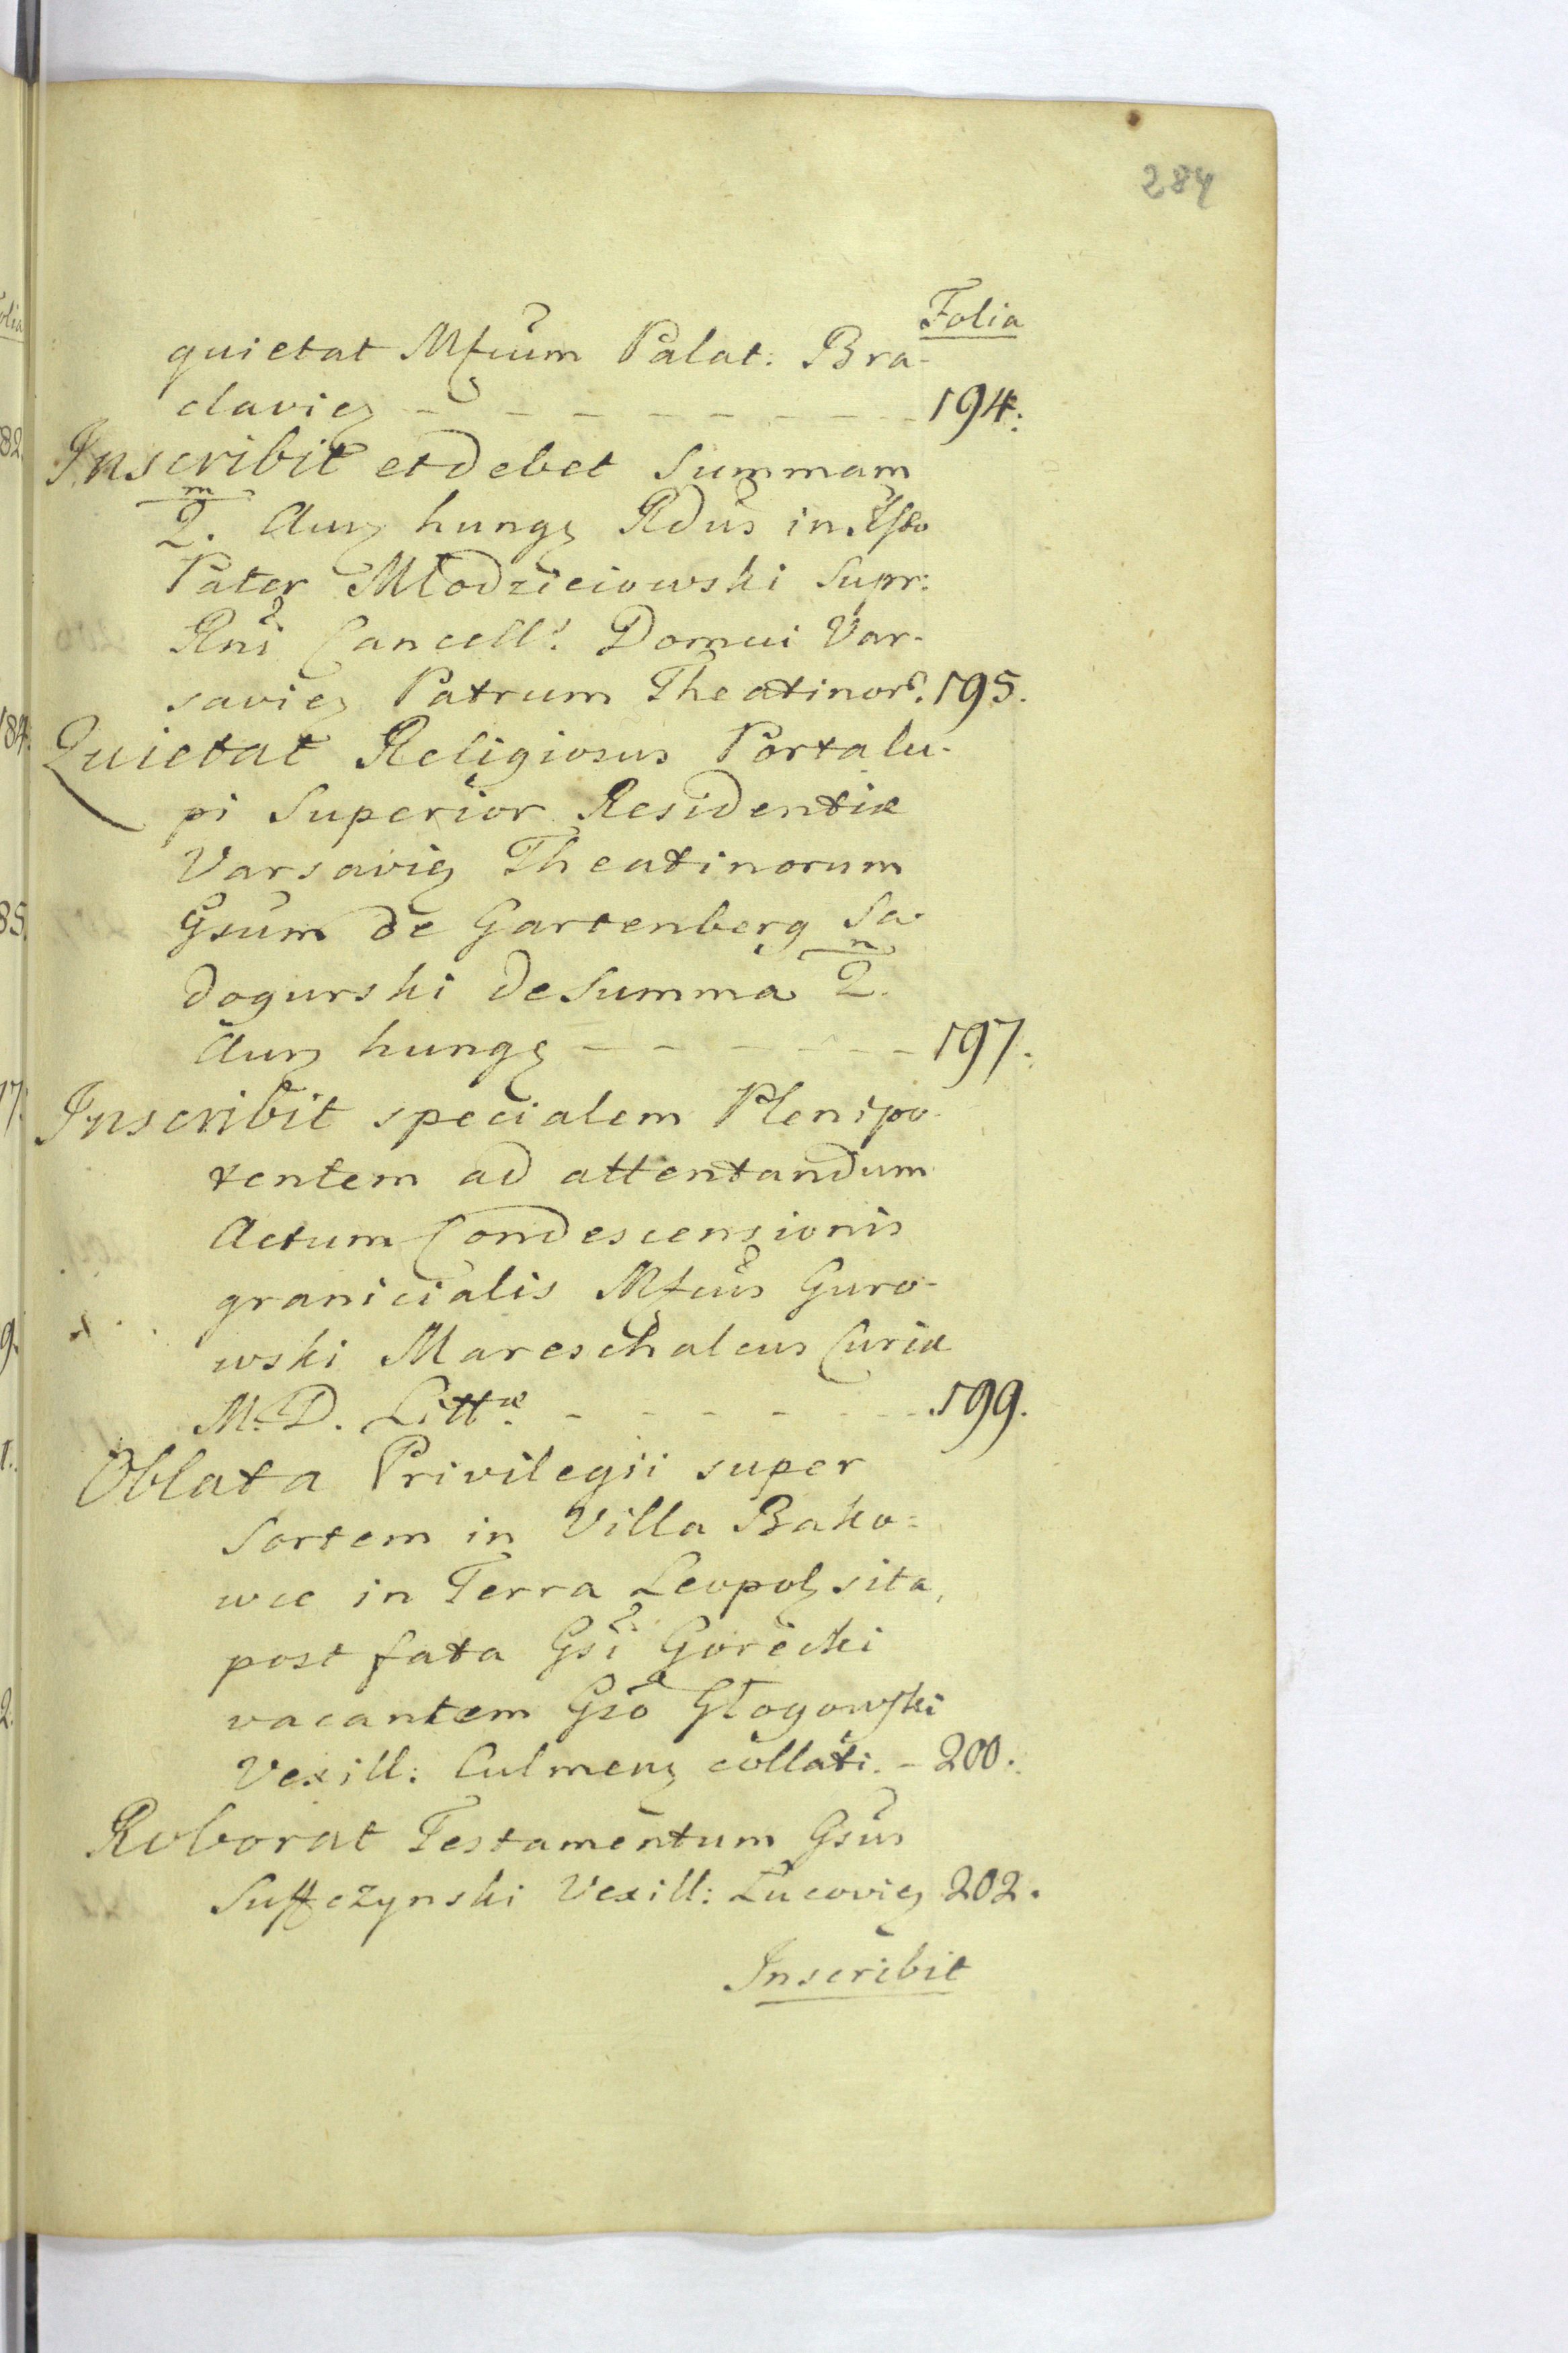 284
Folia
quietat Mfcum Palat: Bra-
claviez 194.
Inscribit et debet Summam
m
2. Aurz hungz Rdus in Xsto
Pater Młodzieiowski Supr:
Rni Cancells. Domui Var-
saviez Patrum Theatinor. 195.
Quietat Religiosus Portalu-
pi Superior Residentiæ
Varsaviez Theatinorum
Gsum de Gartenberg Sa-
dogurski de Summa 2.
m
Aurz hungz - - - - - - 197.
Inscribit specialem Plenipo-
tentem ad attentandum
Actum Condescensionis
granicialis Mfcus Guro-
wski Mareschalcus Curiæ
M. D. Littæ. - - - - - - 199.
Oblata Privilegii super
Sortem in Villa Bako=
wce in Terra Leopolz sita,
post fata Gsi Gorecki
vacantem Gso Głogowski
Vexill: Culmenz collati. - 200.
Roborat Testamentum Gsus
Suffczynski Vexill: Lucoviez 202.
Inscribit